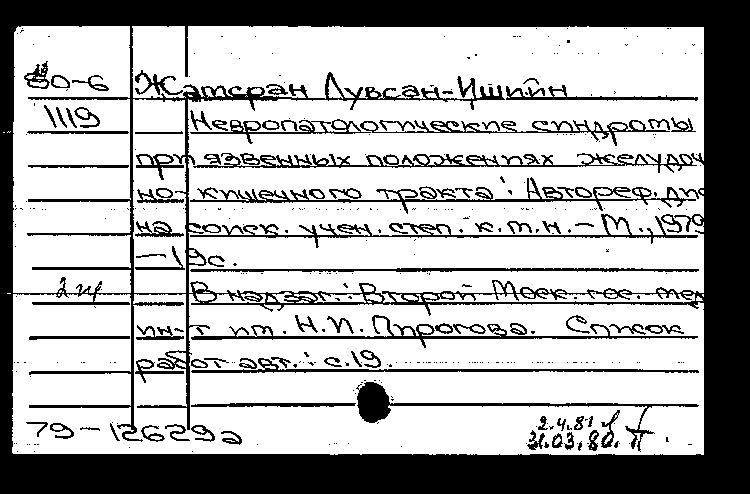 80-6 Жатсран Лувсан-Ишийн
1119 Невропатологические синдромы
при язвенных положениях желудоч
но-кишечного тракта: Автореф. дис
на соиск. учен. степ. к.м.н. - М., 1979
- 19 с.
2 ц В надзаг.: Второй Моск. гос. мед
ин-т им. Н.И. Пирогова. Список
работ авт.: с. 19.
79-126292
2.4.81
31.03.80.